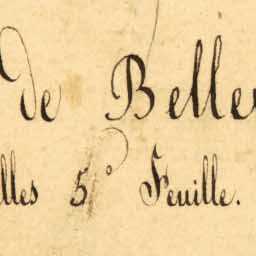 de Belle
lles 5° Feuille.